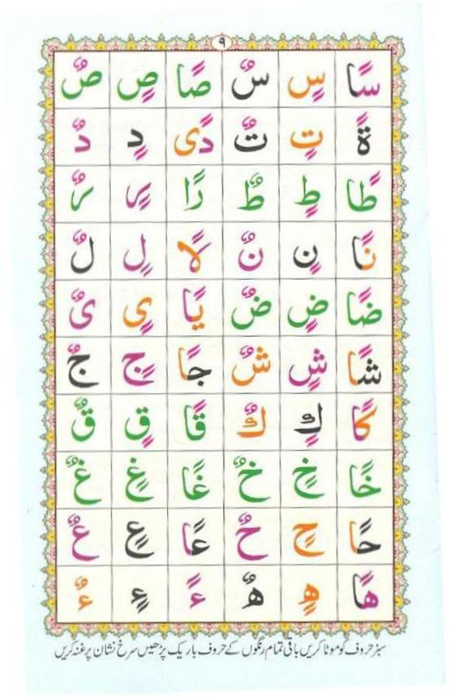 ٩
سًا سٍ سٌ صًا صٍ صٌ
ةً تٍ تٌ دًى دٍ دٌ
طًا طٍ طٌ رًا رٍ رٌ
نًا نٍ نٌ لًا لٍ لٌ
ضًا ضٍ ضٌ يًا یٍ یٌ
شًا شٍ شٌ جًا جٍ جٌ
كًا كٍ كٌ قًا قٍ قٌ
خًا خٍ خٌ غًا غٍ غٌ
حًا حٍ حٌ عًا عٍ عٌ
هًا هٍ هٌ ءً ءٍ ءٌ
سبز حروف کو موٹا کریں باقی تمام رنگوں کے حروف باریک پڑھیں سرخ نشان پر غنہ کریں